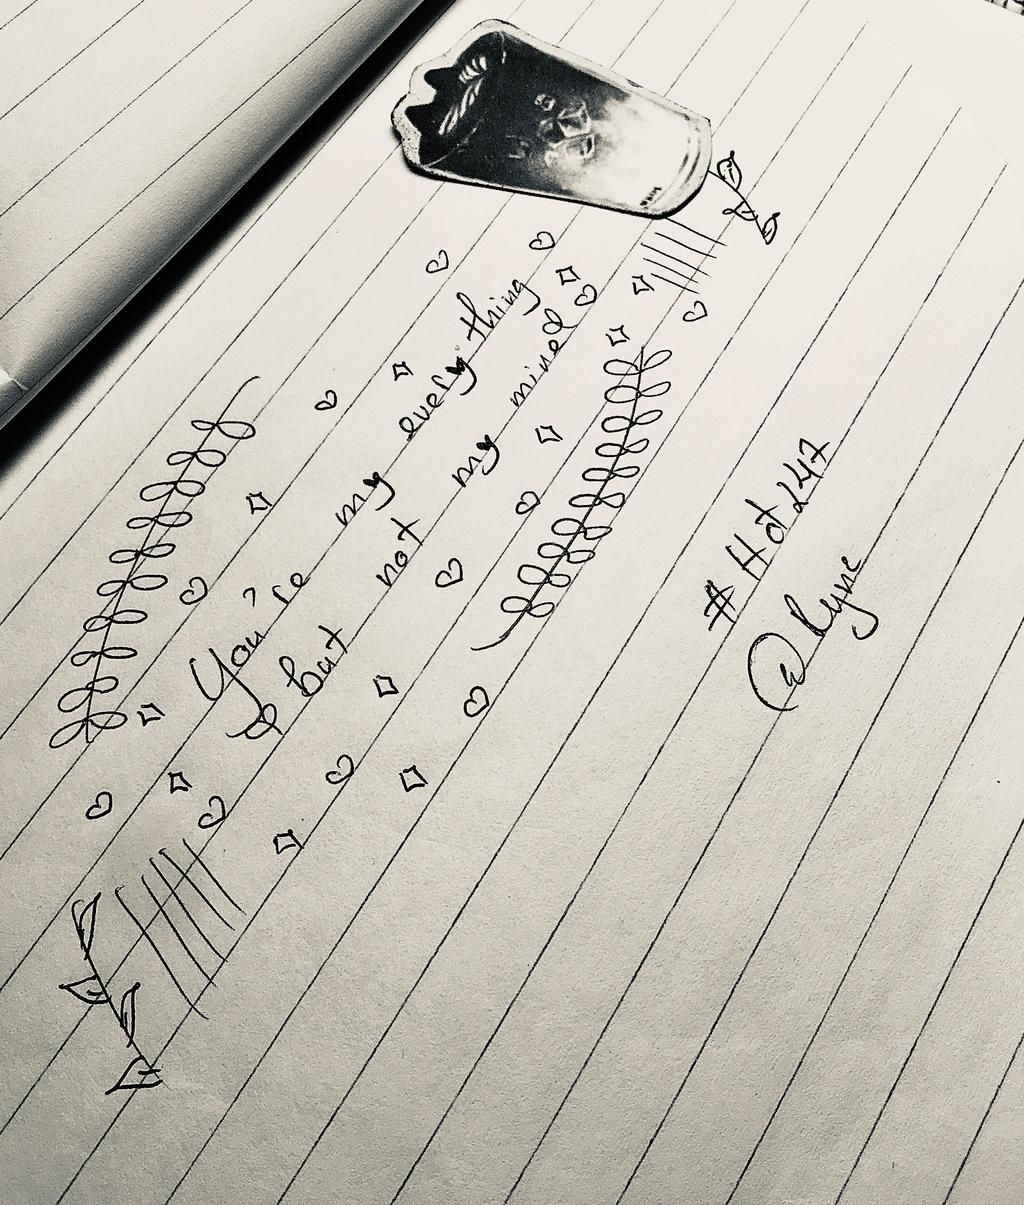 You're my everything
& but not my mined
# Hot 247
@ Ryne